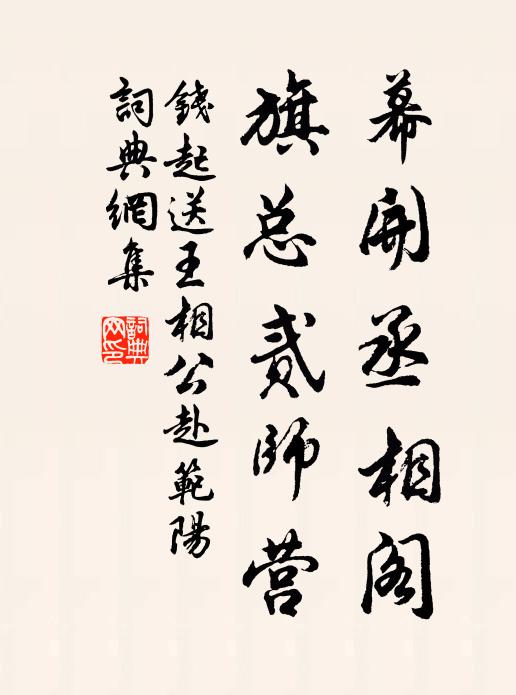 幕開丞相阁
旗总贰師营
錢起送王相公赴範陽
詞典網集
詞典
网印